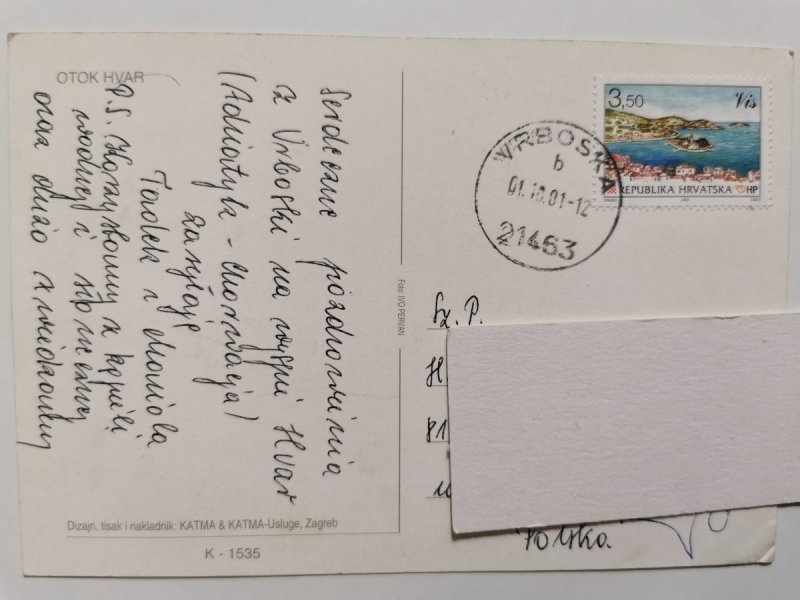 OTOK HVAR
Serdeczne pozdrowienia
z Vrboski na wyspie Hvar
(Adriatyk - Chorwacja)
zasyłają
Tadek i Mariola
P.S. Korzystamy z kąpieli
wodnej i słonecznej
oraz dużo zwiedzamy
Dizajn, tisak i nakladnik: KATMA & KATMA-Usluge, Zagreb
K - 1535
Foto: IVO PERVAN
3,50 Vis
REPUBLIKA HRVATSKA HP
VRBOSKA
b
01.10.01-12
21463
Sz. P.
H
81
Polska.